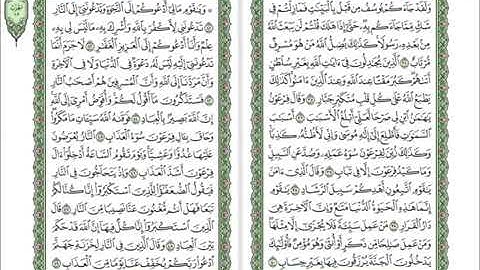 وَلَقَدْ جَآءَكُمْ يُوسُفُ مِن قَبْلُ بِٱلْبَيِّنَٰتِ فَمَا زِلْتُمْ فِى
شَكٍّ مِّمَّا جَآءَكُم بِهِۦ حَتَّىٰٓ إِذَا هَلَكَ قُلْتُمْ لَن يَبْعَثَ ٱللَّهُ
مِنۢ بَعْدِهِۦ رَسُولًا كَذَٰلِكَ يُضِلُّ ٱللَّهُ مَنْ هُوَ مُسْرِفٌ
مُّرْتَابٌ ٣٤ ٱلَّذِينَ يُجَٰدِلُونَ فِىٓ ءَايَٰتِ ٱللَّهِ بِغَيْرِ سُلْطَٰنٍ
أَتَىٰهُمْ كَبُرَ مَقْتًا عِندَ ٱللَّهِ وَعِندَ ٱلَّذِينَ ءَامَنُوا۟ كَذَٰلِكَ
يَطْبَعُ ٱللَّهُ عَلَىٰ كُلِّ قَلْبِ مُتَكَبِّرٍ جَبَّارٍ ٣٥ وَقَالَ فِرْعَوْنُ
يَٰهَٰمَٰنُ ٱبْنِ لِى صَرْحًا لَّعَلِّىٓ أَبْلُغُ ٱلْأَسْبَٰبَ ٣٦ أَسْبَٰبَ
ٱلسَّمَٰوَٰتِ فَأَطَّلِعَ إِلَىٰٓ إِلَٰهِ مُوسَىٰ وَإِنِّى لَأَظُنُّهُۥ كَٰذِبًا
وَكَذَٰلِكَ زُيِّنَ لِفِرْعَوْنَ سُوٓءُ عَمَلِهِۦ وَصُدَّ عَنِ ٱلسَّبِيلِ
وَمَا كَيْدُ فِرْعَوْنَ إِلَّا فِى تَبَابٍ ٣٧ وَقَالَ ٱلَّذِىٓ ءَامَنَ
يَٰقَوْمِ ٱتَّبِعُونِ أَهْدِكُمْ سَبِيلَ ٱلرَّشَادِ ٣٨ يَٰقَوْمِ
إِنَّمَا هَٰذِهِ ٱلْحَيَوٰةُ ٱلدُّنْيَا مَتَٰعٌ وَإِنَّ ٱلْءَاخِرَةَ هِىَ
دَارُ ٱلْقَرَارِ ٣٩ مَنْ عَمِلَ سَيِّئَةً فَلَا يُجْزَىٰٓ إِلَّا مِثْلَهَا
وَمَنْ عَمِلَ صَٰلِحًا مِّن ذَكَرٍ أَوْ أُنثَىٰ وَهُوَ مُؤْمِنٌ فَأُو۟لَٰٓئِكَ
يَدْخُلُونَ ٱلْجَنَّةَ يُرْزَقُونَ فِيهَا بِغَيْرِ حِسَابٍ ٤٠
وَيَٰقَوْمِ مَا لِىٓ أَدْعُوكُمْ إِلَى ٱلنَّجَوٰةِ وَتَدْعُونَنِىٓ إِلَى ٱلنَّارِ ٤١
تَدْعُونَنِى لِأَكْفُرَ بِٱللَّهِ وَأُشْرِكَ بِهِۦ مَا لَيْسَ لِى بِهِۦ
عِلْمٌ وَأَنَا۠ أَدْعُوكُمْ إِلَى ٱلْعَزِيزِ ٱلْغَفَّٰرِ ٤٢ لَا جَرَمَ أَنَّمَا
تَدْعُونَنِىٓ إِلَيْهِ لَيْسَ لَهُۥ دَعْوَةٌ فِى ٱلدُّنْيَا وَلَا فِى ٱلْءَاخِرَةِ
وَأَنَّ مَرَدَّنَآ إِلَى ٱللَّهِ وَأَنَّ ٱلْمُسْرِفِينَ هُمْ أَصْحَٰبُ ٱلنَّارِ
٤٣ فَسَتَذْكُرُونَ مَآ أَقُولُ لَكُمْ وَأُفَوِّضُ أَمْرِىٓ إِلَى ٱللَّهِ
إِنَّ ٱللَّهَ بَصِيرٌۢ بِٱلْعِبَادِ ٤٤ فَوَقَىٰهُ ٱللَّهُ سَيِّـَٔاتِ مَا مَكَرُوا۟
وَحَاقَ بِـَٔالِ فِرْعَوْنَ سُوٓءُ ٱلْعَذَابِ ٤٥ ٱلنَّارُ يُعْرَضُونَ
عَلَيْهَا غُدُوًّا وَعَشِيًّا وَيَوْمَ تَقُومُ ٱلسَّاعَةُ أَدْخِلُوٓا۟ ءَالَ
فِرْعَوْنَ أَشَدَّ ٱلْعَذَابِ ٤٦ وَإِذْ يَتَحَآجُّونَ فِى ٱلنَّارِ
فَيَقُولُ ٱلضُّعَفَٰٓؤُا۟ لِلَّذِينَ ٱسْتَكْبَرُوٓا۟ إِنَّا كُنَّا لَكُمْ
تَبَعًا فَهَلْ أَنتُم مُّغْنُونَ عَنَّا نَصِيبًا مِّنَ ٱلنَّارِ ٤٧
قَالَ ٱلَّذِينَ ٱسْتَكْبَرُوٓا۟ إِنَّا كُلٌّ فِيهَآ إِنَّ ٱللَّهَ قَدْ حَكَمَ
بَيْنَ ٱلْعِبَادِ ٤٨ وَقَالَ ٱلَّذِينَ فِى ٱلنَّارِ لِخَزَنَةِ جَهَنَّمَ
ٱدْعُوا۟ رَبَّكُمْ يُخَفِّفْ عَنَّا يَوْمًا مِّنَ ٱلْعَذَابِ ٤٩